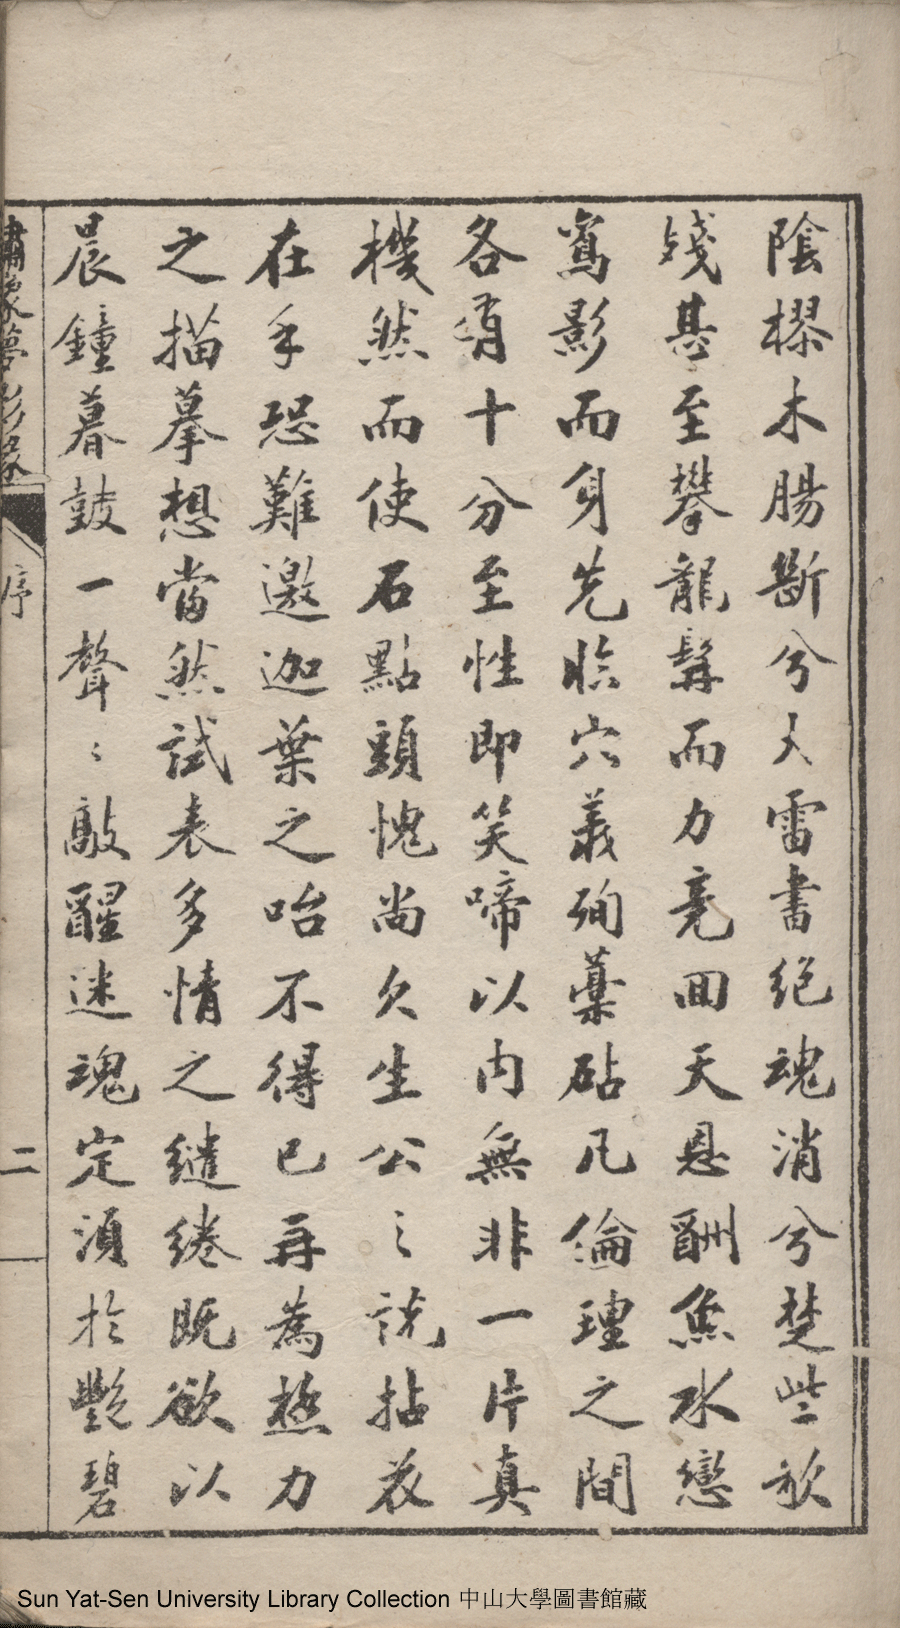 陰樛木腸斷兮人雷書絕魂消兮楚些歌
殘甚至攀龍髯而力竟回天恩酬魚水戀
鴛影而身先臨穴義殉藁砧凡倫理之間
各有十分至性即笑啼以内無非一片真
機然而使石點頭愧尚欠生公之說拈衣
在手恐難邀迦葉之咍不得已再為極力
之描摹想當然試表多情之繾綣既欲以
晨鐘暮鼓一聲〻敲醒迷魂定須於艷碧
繡像夢影緣
序
二
Sun Yat-Sen University Library Collection 中山大學圖書館藏